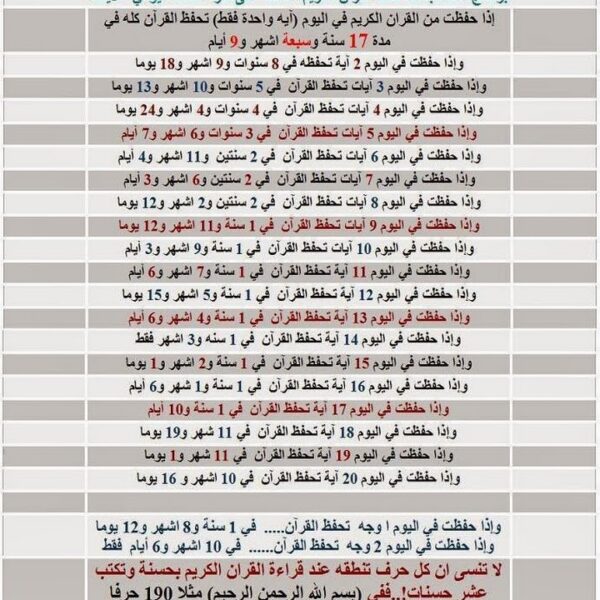 إذا حفظت من القران الكريم في اليوم (أيه واحدة فقط) تحفظ القرآن كله في
مدة 17 سنة وسبعة اشهر و9 أيام
وإذا حفظت في اليوم 2 آية تحفظه في 8 سنوات و9 اشهر و18 يوما
وإذا حفظت في اليوم 3 آيات تحفظ القرآن في 5 سنوات و10 اشهر و13 يوما
وإذا حفظت في اليوم 4 آيات تحفظ القرآن في 4 سنوات و4 اشهر و24 يوما
وإذا حفظت في اليوم 5 آيات تحفظ القرآن في 3 سنوات و6 اشهر و7 أيام
وإذا حفظت في اليوم 6 آيات تحفظ القرآن في 2 سنتين و11 اشهر و4 أيام
وإذا حفظت في اليوم 7 آيات تحفظ القرآن في 2 سنتين و6 اشهر و3 أيام
وإذا حفظت في اليوم 8 آيات تحفظ القرآن في 2 سنتين و2 اشهر و12 يوما
وإذا حفظت في اليوم 9 آيات تحفظ القرآن في 1 سنة و11 اشهر و12 يوما
وإذا حفظت في اليوم 10 آيات تحفظ القرآن في 1 سنة و9 اشهر و3 أيام
وإذا حفظت في اليوم 11 آية تحفظ القرآن في 1 سنة و7 اشهر و6 أيام
وإذا حفظت في اليوم 12 آية تحفظ القرآن في 1 سنة و5 اشهر و15 يوما
وإذا حفظت في اليوم 13 آية تحفظ القرآن في 1 سنة و4 اشهر و6 أيام
وإذا حفظت في اليوم 14 آية تحفظ القرآن في 1 سنه و3 اشهر فقط
وإذا حفظت في اليوم 15 آية تحفظ القرآن في 1 سنة و2 اشهر و1 يوما
وإذا حفظت في اليوم 16 آية تحفظ القرآن في 1 سنة و1 شهر و6 أيام
وإذا حفظت في اليوم 17 آية تحفظ القرآن في 1 سنة و10 أيام
وإذا حفظت في اليوم 18 آية تحفظ القرآن في 11 شهر و19 يوما
وإذا حفظت في اليوم 19 آية تحفظ القرآن في 11 شهر و1 يوما
وإذا حفظت في اليوم 20 آية تحفظ القرآن في 10 اشهر و16 يوما
وإذا حفظت في اليوم ا وجه تحفظ القرآن..... في 1 سنة و8 اشهر و12 يوما
وإذا حفظت في اليوم 2 وجه تحفظ القرآن...... في 10 اشهر و6 أيام فقط
لا تنسى ان كل حرف تنطقه عند قراءة القران الكريم بحسنة وتكتب
عشر حسنات!..ففي (بسم الله الرحمن الرحيم) مثلا 190 حرفا